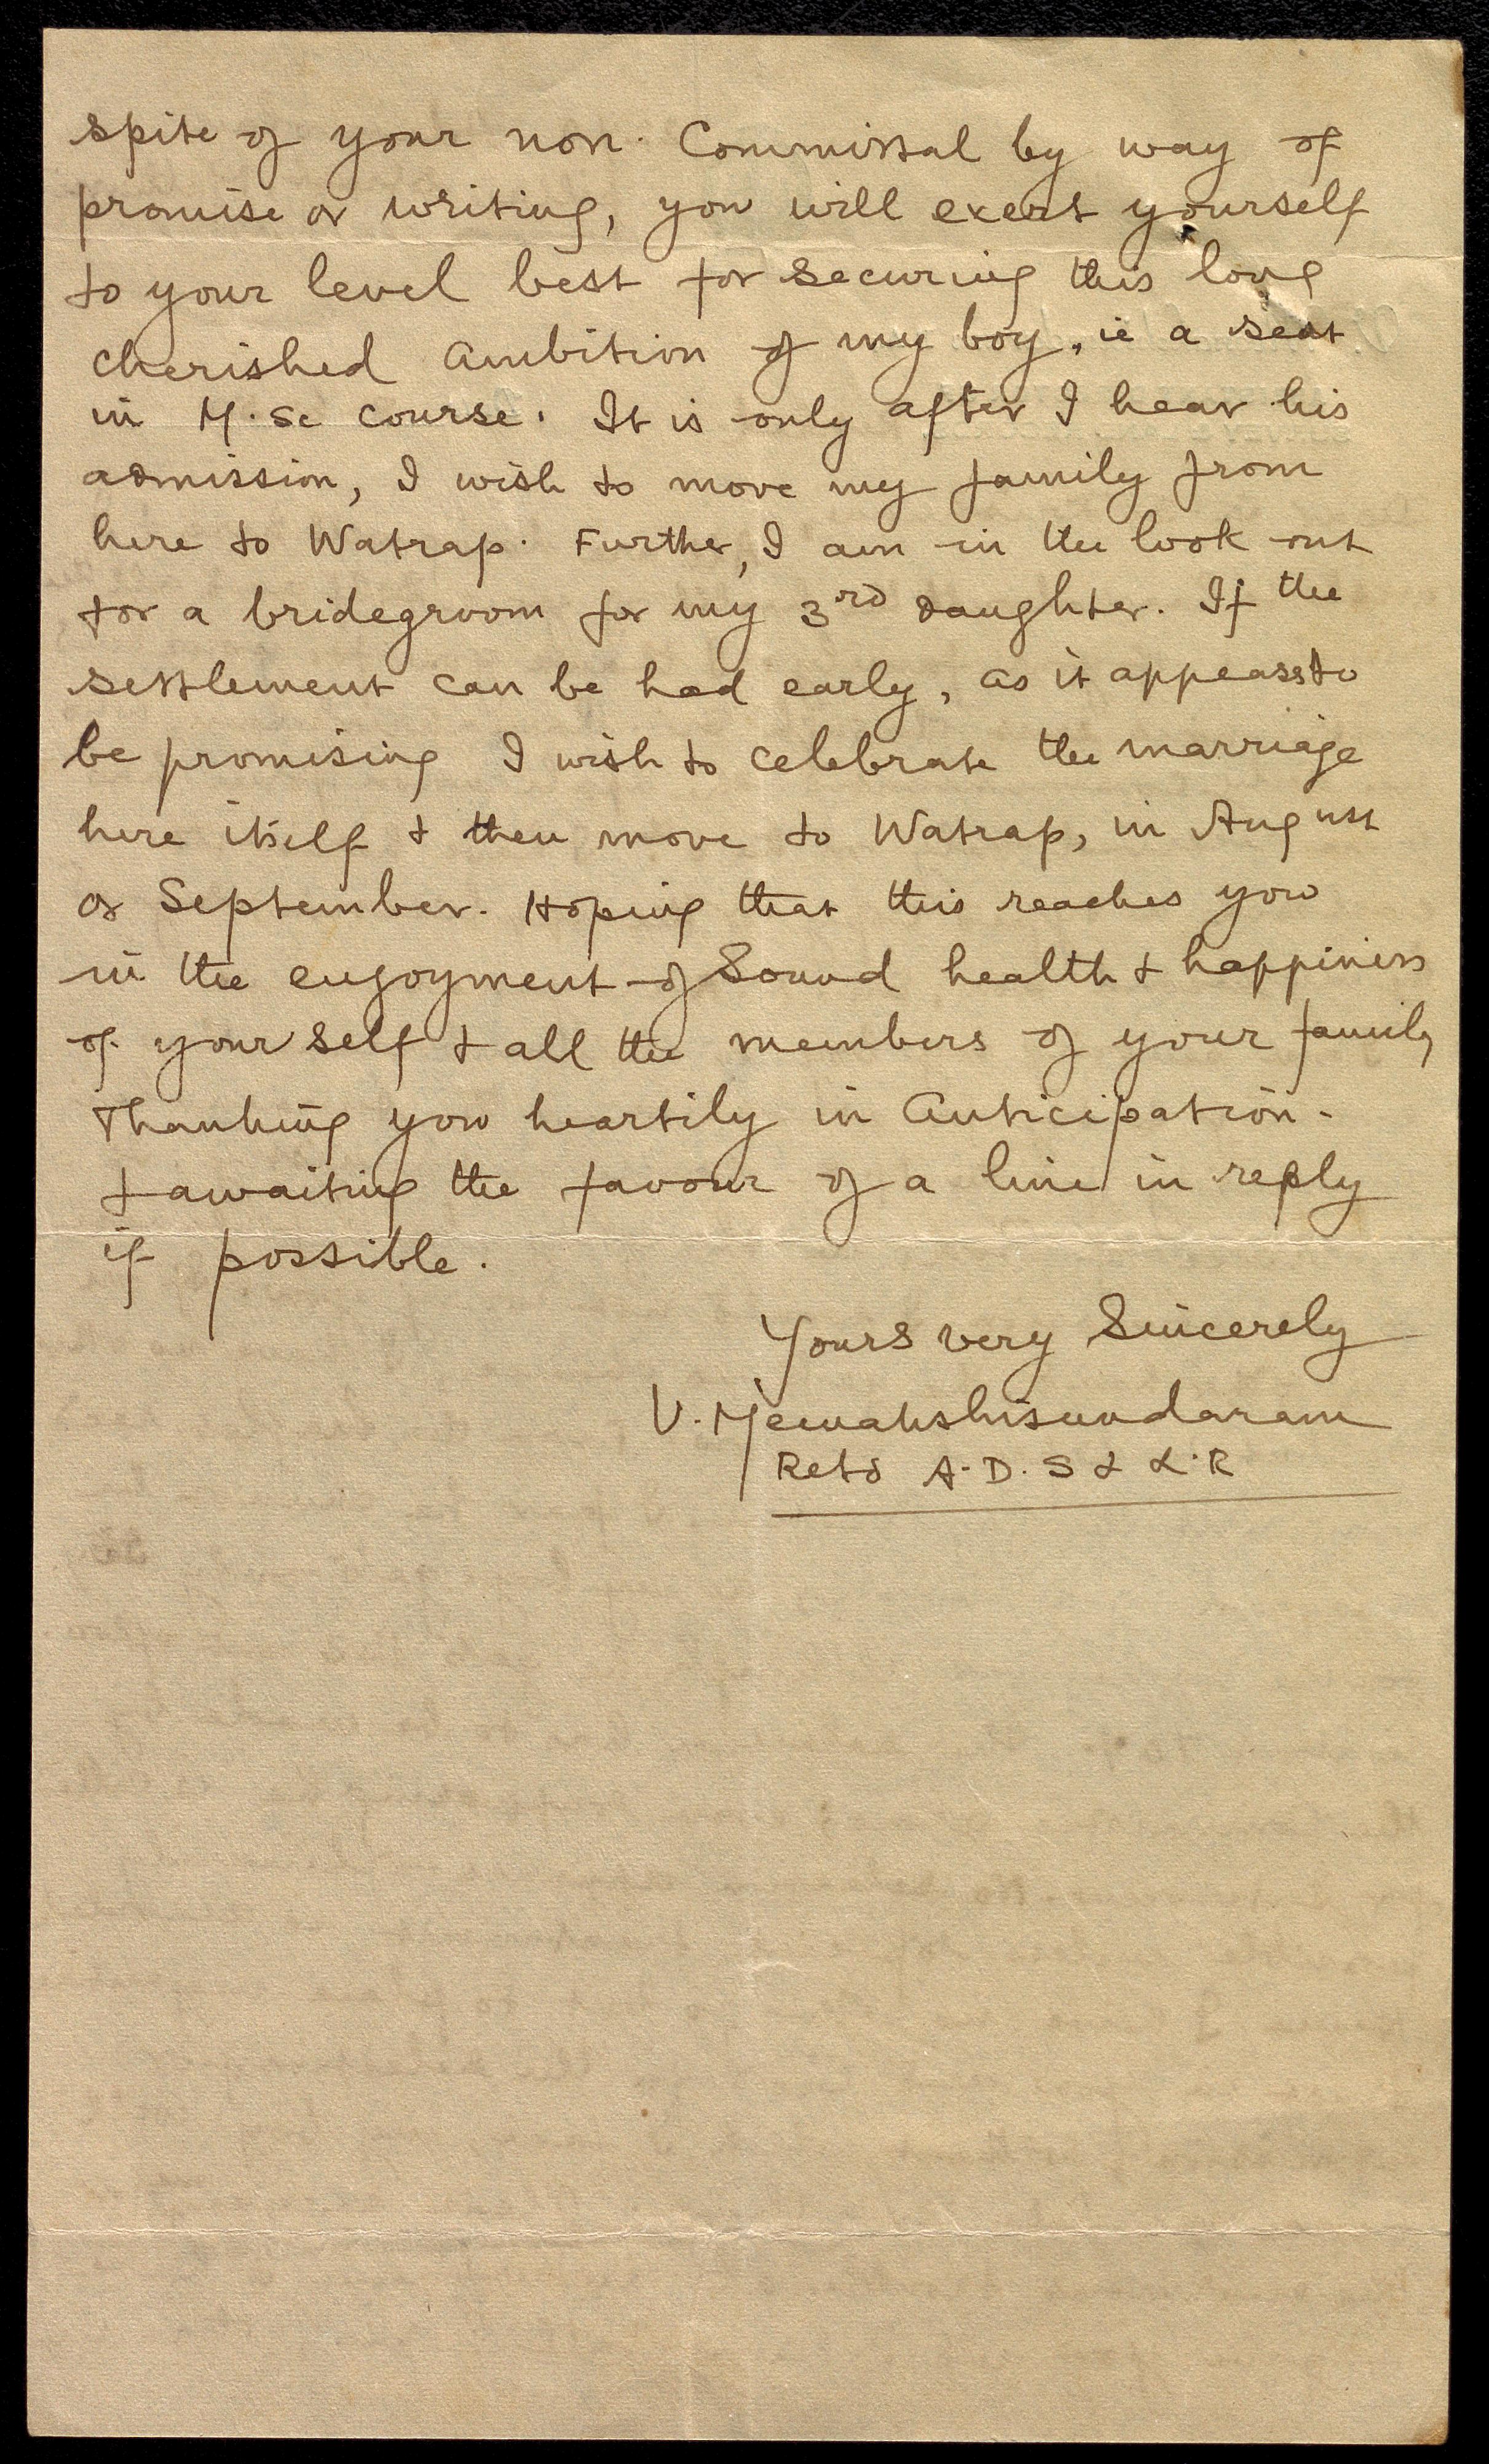 spite of your non. Committal by way of
promise or writing, you will exert yourself
to your level best for securing this long
cherished ambition of my boy, ie a seat
in M.Sc course. It is only after I hear his
admission, I wish to move my family from
here to Watrap. Further, I am in the look out
for a bridegroom for my 3rd daughter. If the
settlement can be had early, as it appears to
be promising I wish to celebrate the marriage
here itself & then move to Watrap, in August
or September. Hoping that this reaches you
in the enjoyment of Sound health & happiness
of your self & all the members of your family
Thanking you heartily in Anticipation -
& awaiting the favour of a line in reply
if possible.
Yours very Sincerely
V. Menakshisundaram
Retd A.D.S & L.R